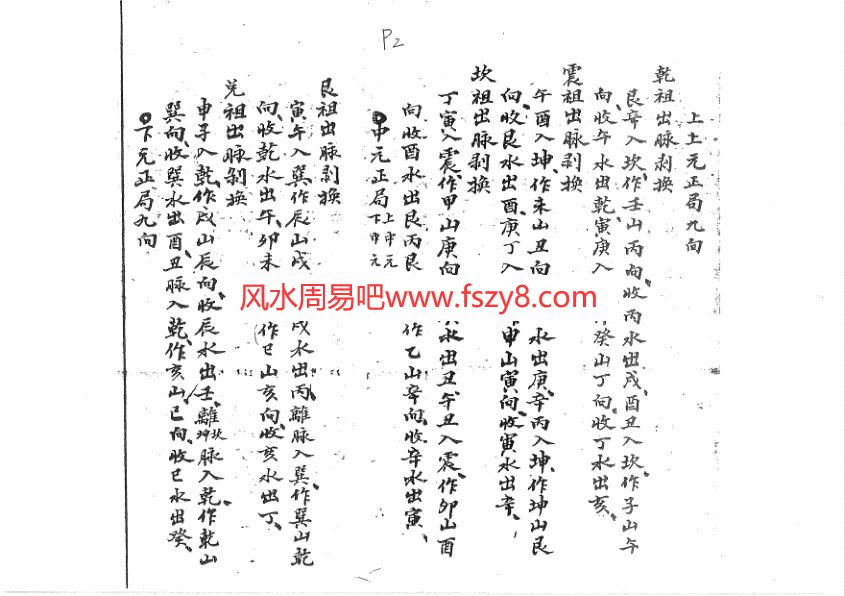 P2
上上元正局九向
乾祖出脉剥换
艮辛入坎、作壬山丙向、收丙水出戌、酉丑入坎、作子山午
向、收午水出乾、寅庚入 癸山丁向、收丁水出亥、
震祖出脉剥换
午酉入坤、作未山丑向 水出庚、辛丙入坤、作坤山艮
向、收艮水出酉、庚丁入 申山寅向、收寅水出辛、
坎祖出脉剥换
丁寅入震、作甲山庚向 水出丑、午丑入震、作卯山酉
向收酉水出艮丙艮 作乙山辛向、收辛水出寅、
中元正局 上中元 下中元
艮祖出脉剥换
寅午入巽作辰山戌 戌水出丙、離脉入巽、作巽山乾
向、收乾水出午、卯未 作巳山亥向、收亥水出丁、
兑祖出脉剥换
申子入乾、作戌山辰向、收辰水出壬、離坎坤脉入乾、作乾山
巽向、收巽水出酉、丑脉入乾、作亥山、巳向、收巳水出癸、
下元正局九向
风水周易吧www.fszy8.com